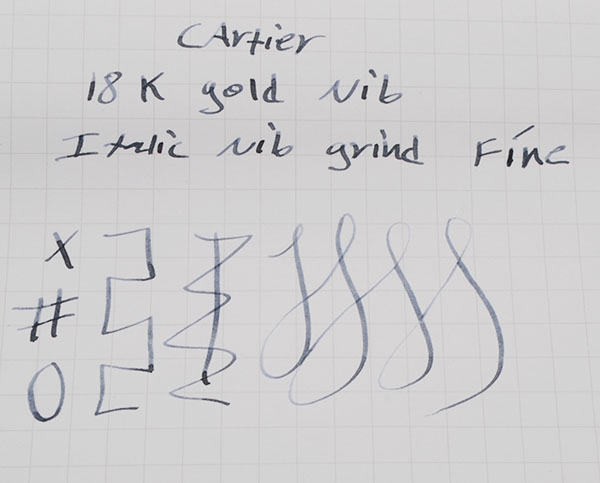 Cartier
18 K gold Nib
Italic Nib grind Fine
X
#
0